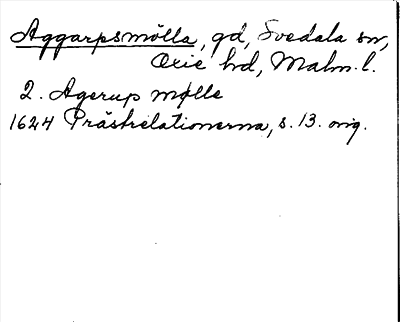 Aggarpsmölla, gd, Svedala sn,
Oxie hd, Malm. l.
2. Agerup mølle
1624 Prästrelationerna, s. 13. orig.